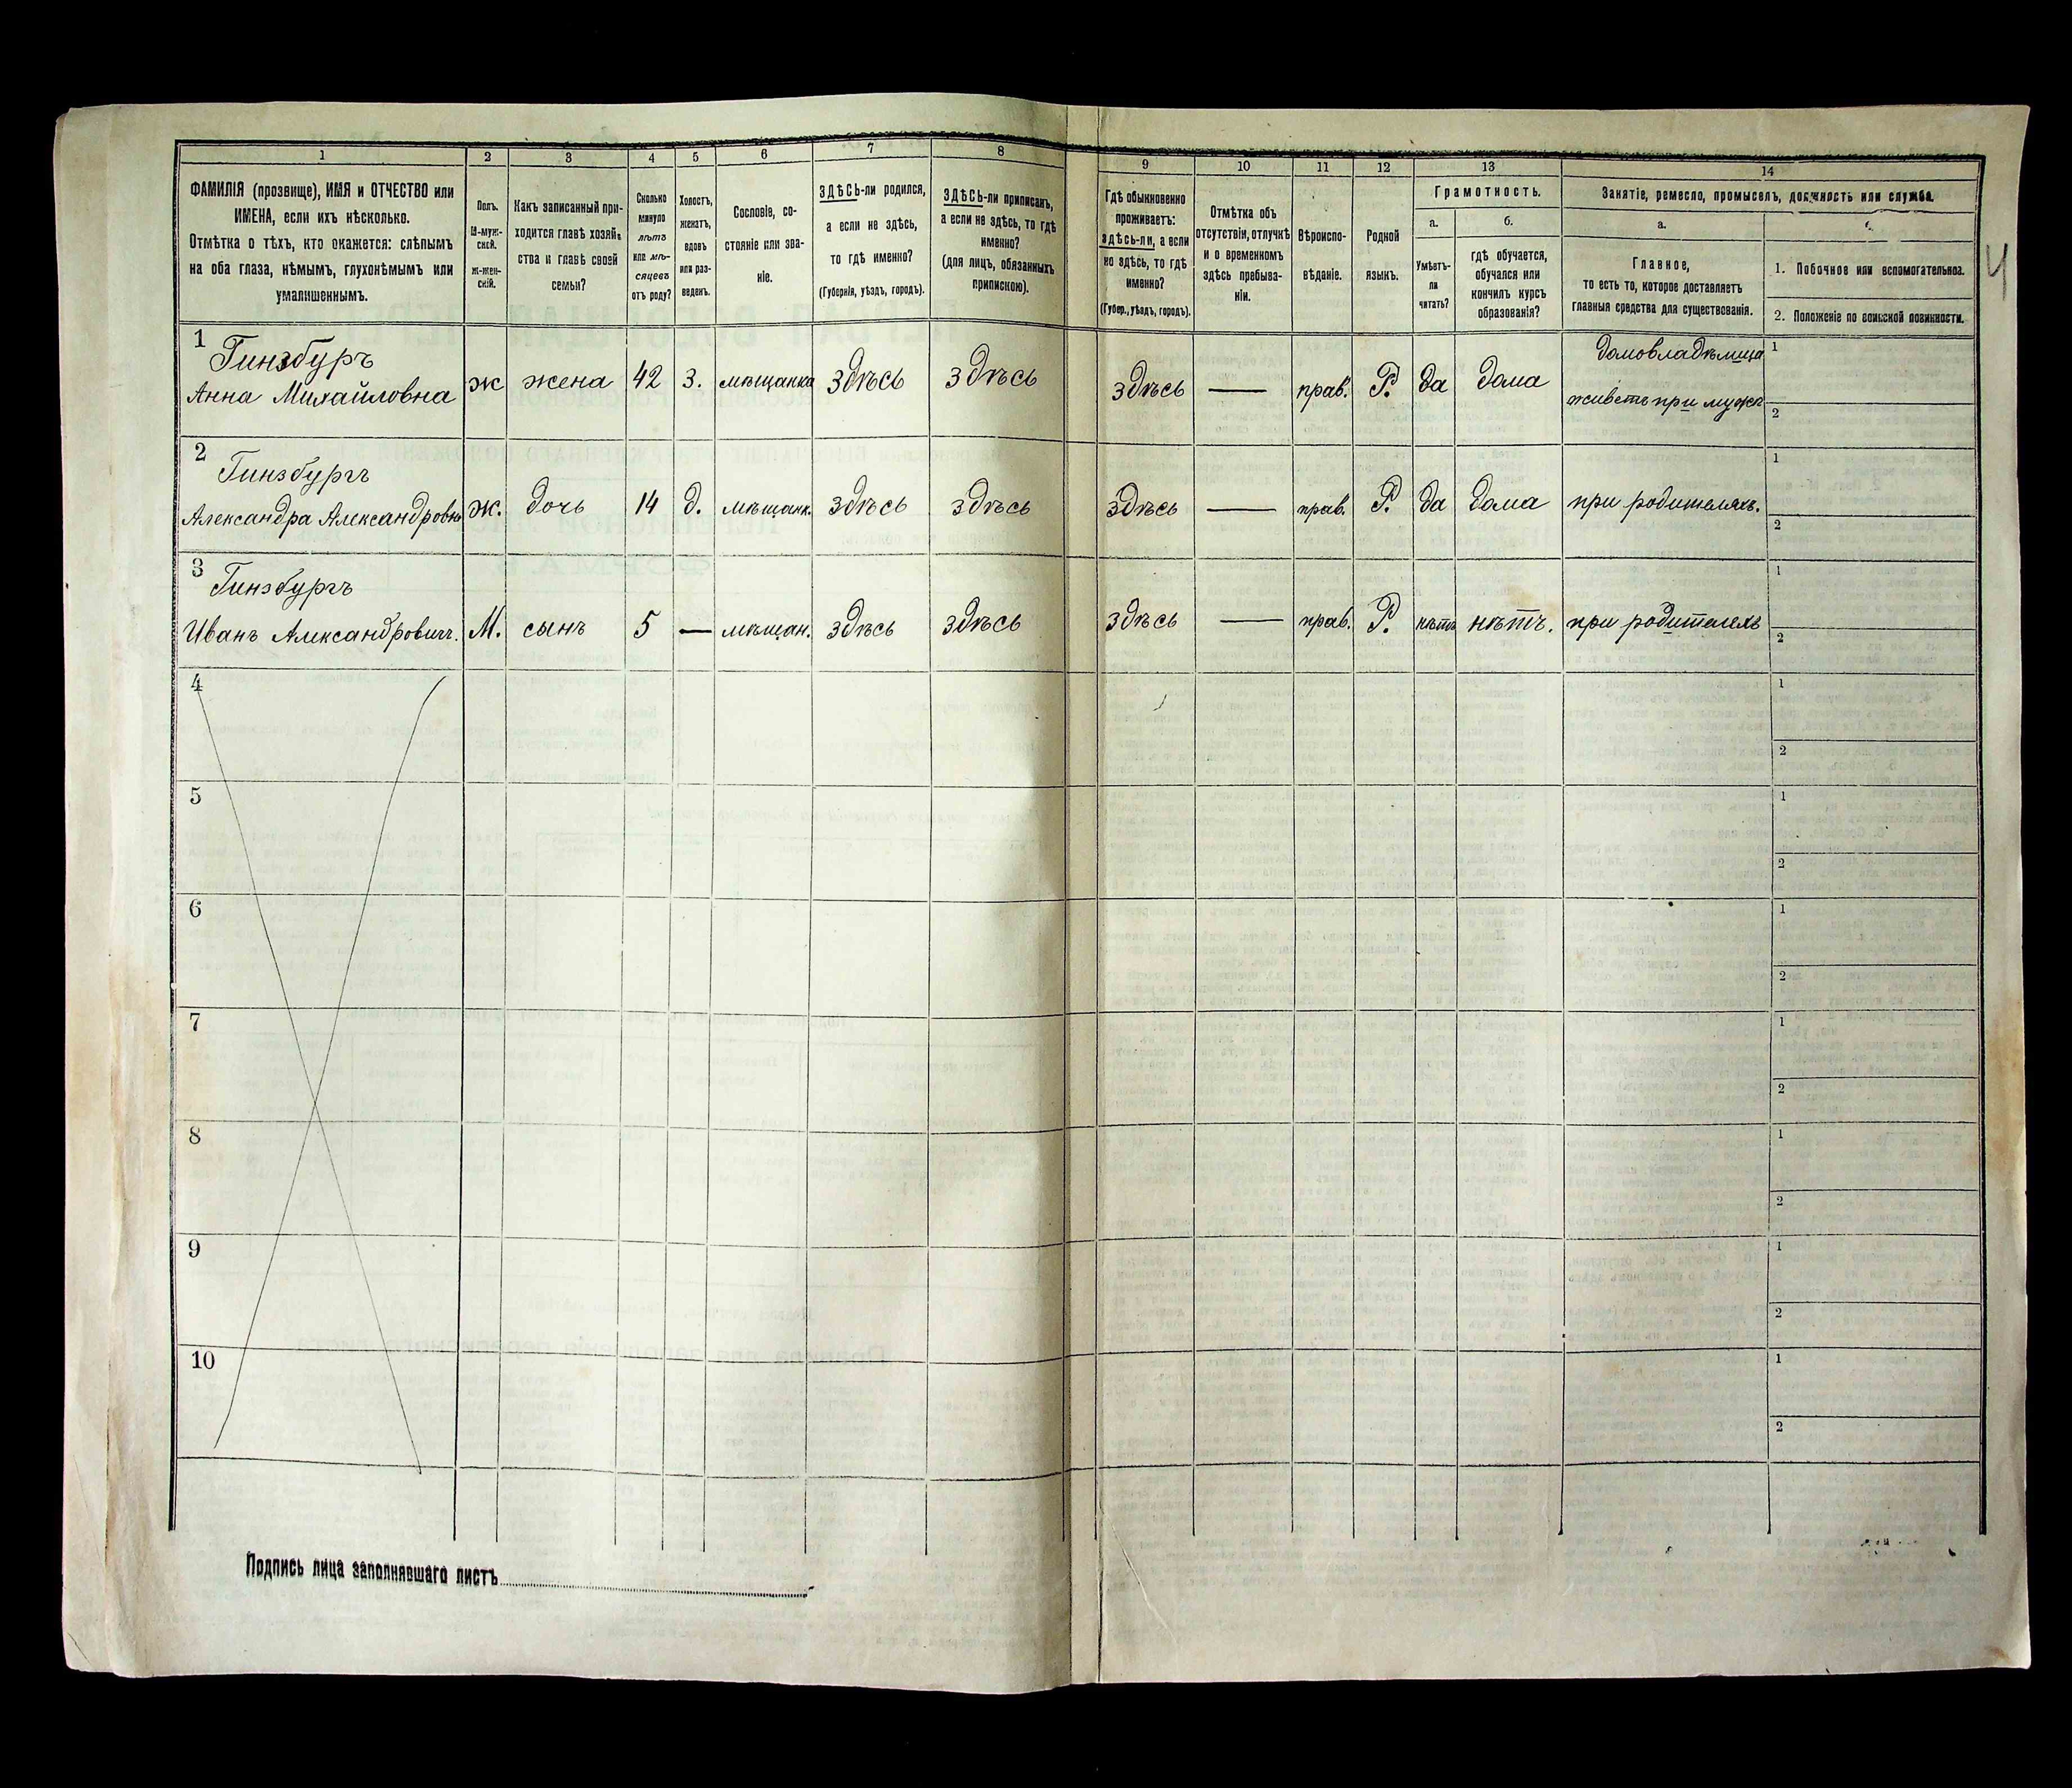 1 2 3 4 5 6 7 8 9 10 11 12 13 14
ФАМИЛІЯ (прозвище), ИМЯ и ОТЧЕСТВО или
ИМЕНА, если ихъ нѣсколько.
Отмѣтка о тѣхъ, кто окажется: слѣпымъ
на оба глаза, нѣмымъ, глухонѣмымъ или
умалишеннымъ.
Полъ.
М-муж-
ской.
ж-жен-
скій.
Какъ записанный при-
ходится главѣ хозяй-
ства и главѣ своей
семьи?
Сколько
минуло
лѣтъ
или мѣ-
сяцевъ
отъ роду?
Холостъ,
женатъ,
вдовъ
или раз-
веденъ.
Сословіе, со-
стояніе или зва-
ніе.
ЗДѢСЬ-ли родился,
а если не здѣсь,
то гдѣ именно?
(Губернія, уѣздъ, городъ).
ЗДѢСЬ-ли приписанъ,
а если не здѣсь, то гдѣ
именно?
(для лицъ, обязанныхъ
припискою).
Гдѣ обыкновенно
проживаетъ:
здѣсь-ли, а если
не здѣсь, то гдѣ
именно?
(Губер., уѣздъ, городъ).
Отмѣтка объ
отсутствіи, отлучкѣ
и о временномъ
здѣсь пребыва-
ніи.
Вѣроиспо-
вѣданіе.
Родной
языкъ.
Грамотность.
а. б.
Умѣетъ-
ли
читать?
гдѣ обучается,
обучался или
кончилъ курсъ
образованія?
Занятіе, ремесло, промыселъ, должность или служба.
а.
Главное,
то есть то, которое доставляетъ
главныя средства для существованія.
1. Побочное или вспомогательное.
2. Положеніе по воинской повинности.
4
1 Гинзбуръ
Анна Михайловна ж жена 42 З. мѣщанка здѣсь здѣсь здѣсь — прав. Р. да дома
домовладѣлица
живетъ при мужѣ
1
2
2 Гинзбургъ
Александра Александровна ж. дочь 14 д. мѣщанк. здѣсь здѣсь здѣсь — прав. Р. да дома при родителяхъ.
1
2
3 Гинзбургъ
Иванъ Александровичъ. М. сынъ 5 — мѣщан. здѣсь здѣсь здѣсь — прав. Р. нѣтъ нѣтъ. при родителяхъ
1
2
4
1
2
5
1
2
6
1
2
7
1
2
8
1
2
9
1
2
10
1
2
Подпись лица заполнявшаго листъ